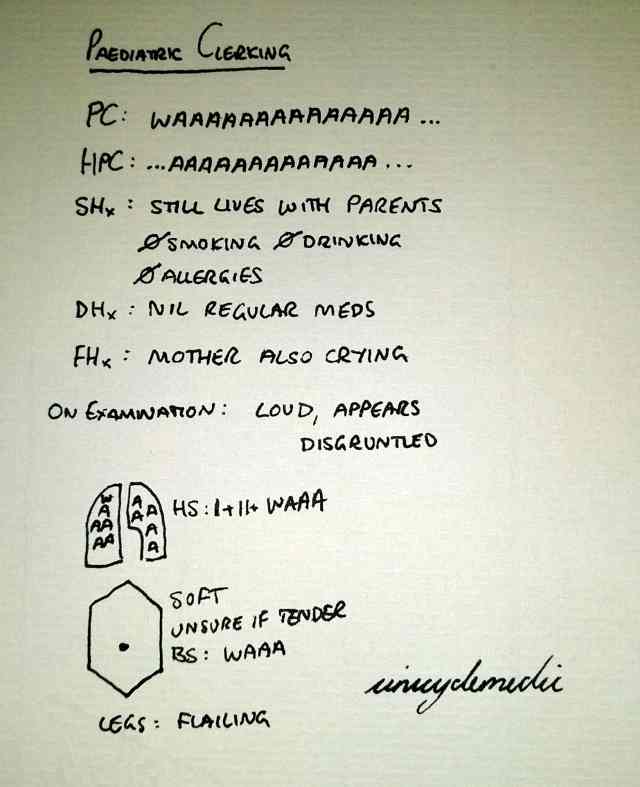 PAEDIATRIC CLERKING
PC: WAAAAAAAAAAAAAAAA ...
HPC: ...AAAAAAAAAAAAAA ...
SHx: STILL LIVES WITH PARENTS
∅ SMOKING ∅ DRINKING
∅ ALLERGIES
DHx: NIL REGULAR MEDS
FHx: MOTHER ALSO CRYING
ON EXAMINATION: LOUD, APPEARS
DISGRUNTLED
W
A
AA
AA
A
AA
A
A
HS: I+II+ WAAA
SOFT
UNSURE IF TENDER
BS: WAAA
LEGS: FLAILING
unicyclemedic